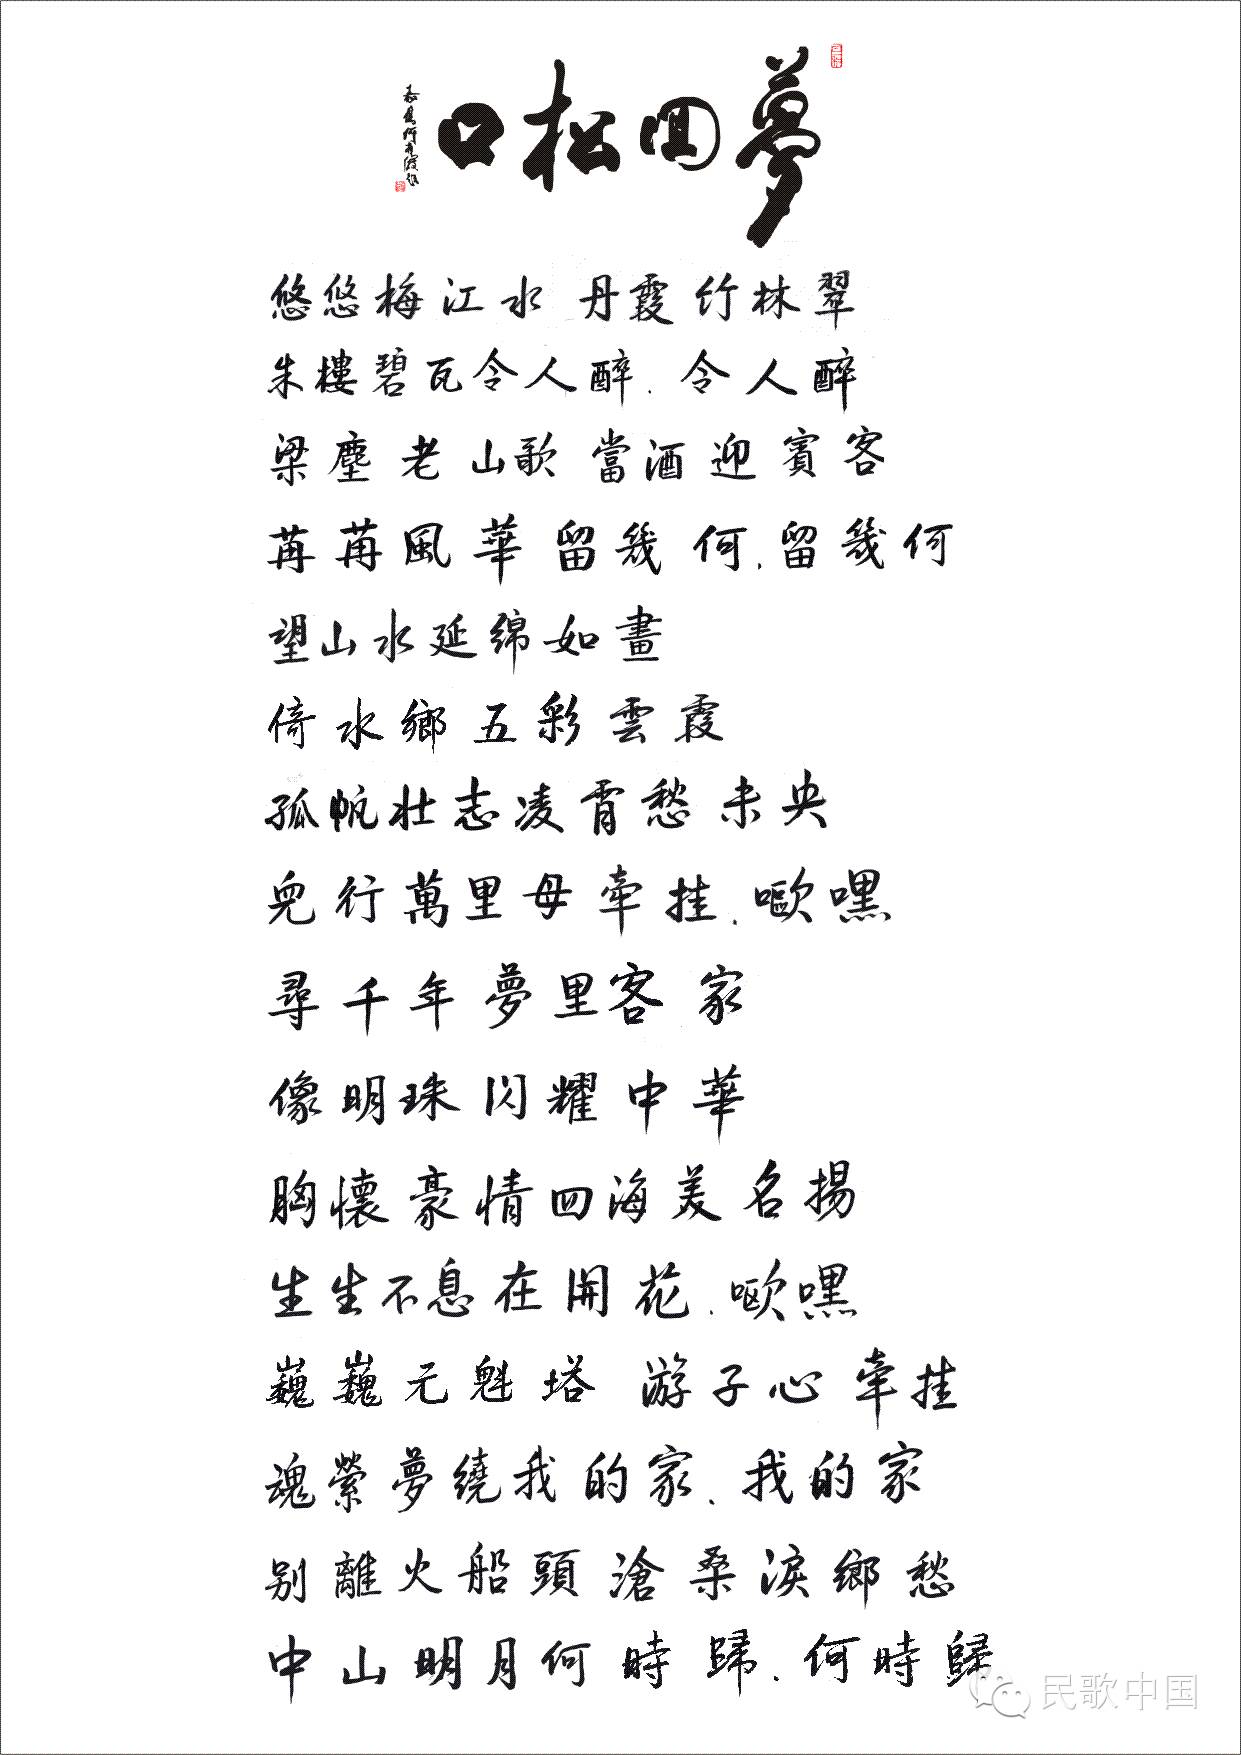 夢回松口
悠悠梅江水 丹霞竹林翠
朱樓碧瓦令人醉.令人醉
梁塵老山歌 當酒迎賓客
苒苒風華留幾何.留幾何
望山水延綿如畫
倚水鄉五彩雲霞
孤帆壯志凌霄愁未央
兒行萬里母牽挂.嘔嘿
尋千年夢里客家
像明珠閃耀中華
胸懷豪情四海美名揚
生生不息在開花.嘔嘿
巍巍元魁塔 游子心牽挂
魂縈夢繞我的家.我的家
別離火船頭 滄桑淚鄉愁
中山明月何時歸.何時歸
民歌中国